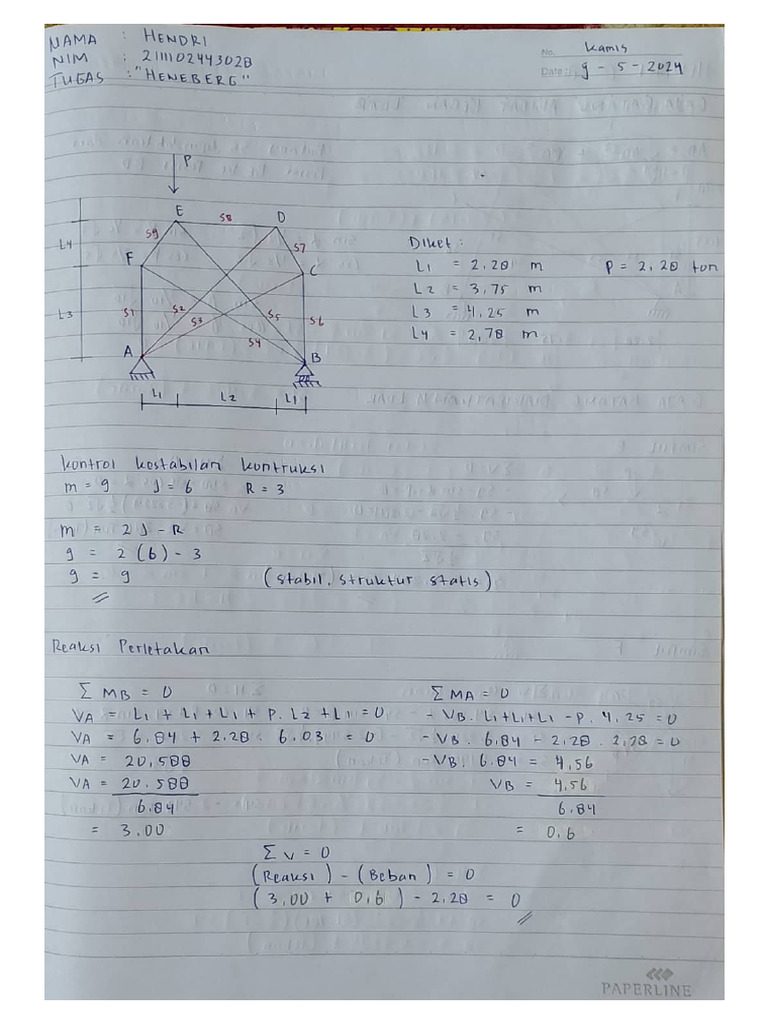 NAMA : HENDRI
NIM : 2111102443028
TUGAS : "HENEBERG"
No. Kamis
Date : 9 - 5 - 2024
P
E S8 D
S9 S7
L4
F C
Diket :
L1 = 2,28 m P = 2,28 ton
L2 = 3,75 m
L3 = 4,25 m
L4 = 2,78 m
L3 S1 S2 S3 S5 S6
S4
A B
L1 L2 L1
kontrol kestabilan kontruksi
m = 9 J = 6 R = 3
m = 2 J - R
9 = 2 (6) - 3
9 = 9 (stabil, struktur statis)
Reaksi Perletakan
Σ MB = 0 Σ MA = 0
VA = L1 + L1 + L1 + P. L2 + L1 = 0 - VB. L1+L1+L1 - P. 4,25 = 0
VA = 6.84 + 2.28 . 6.03 = 0 - VB. 6.84 - 2,28 . 2,28 = 0
VA = 20,588 - VB. 6.84 = 4,56
VA = 20.588 VB = 4,56
6.84 6.84
= 3.00 = 0,6
Σ V = 0
(Reaksi) - (Beban) = 0
(3,00 + 0,6) - 2,28 = 0
PAPERLINE